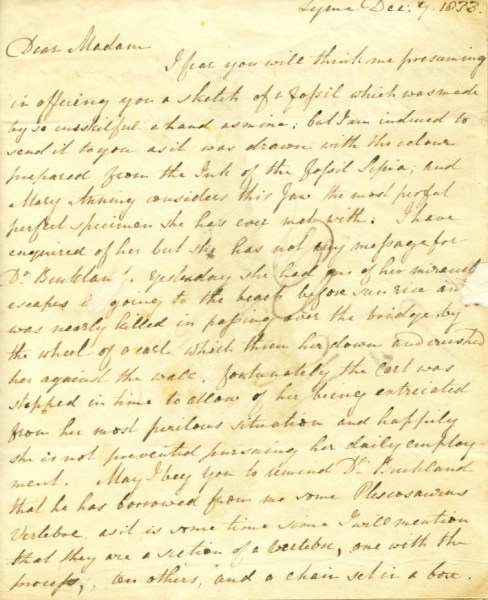 Lyme Dec. 9. 1833.
Dear Madam
I fear you will think me presuming
in offering you a sketch of a Fossil which was made
by so unskilful a hand as mine; but I am induced to
send it to you as it was drawn with the colour
prepared from the Ink of the Fossil Sepia; and
Mary Anning considers this Jaw the most
perfect specimen she has ever met with. I have
enquired of her but she has not any message for
Dr. Buckland. Yesterday she had one of her miraculous
escapes in going to the beach before sun rise and
was nearly killed in passing over the bridge by
the wheel of a cart which threw her down and crushed
her against the wall. Fortunately the cart was
stopped in time to allow of her being extricated
from her most perilous situation and happily
she is not prevented pursuing her daily employ-
ment. May I beg you to remind Dr. Buckland
that he has borrowed from me some Plesiosaurus
Vertebræ as it is some time since I will mention
that they are a section of a vertebræ, one with the
process, ten others, and a chain set in a box.